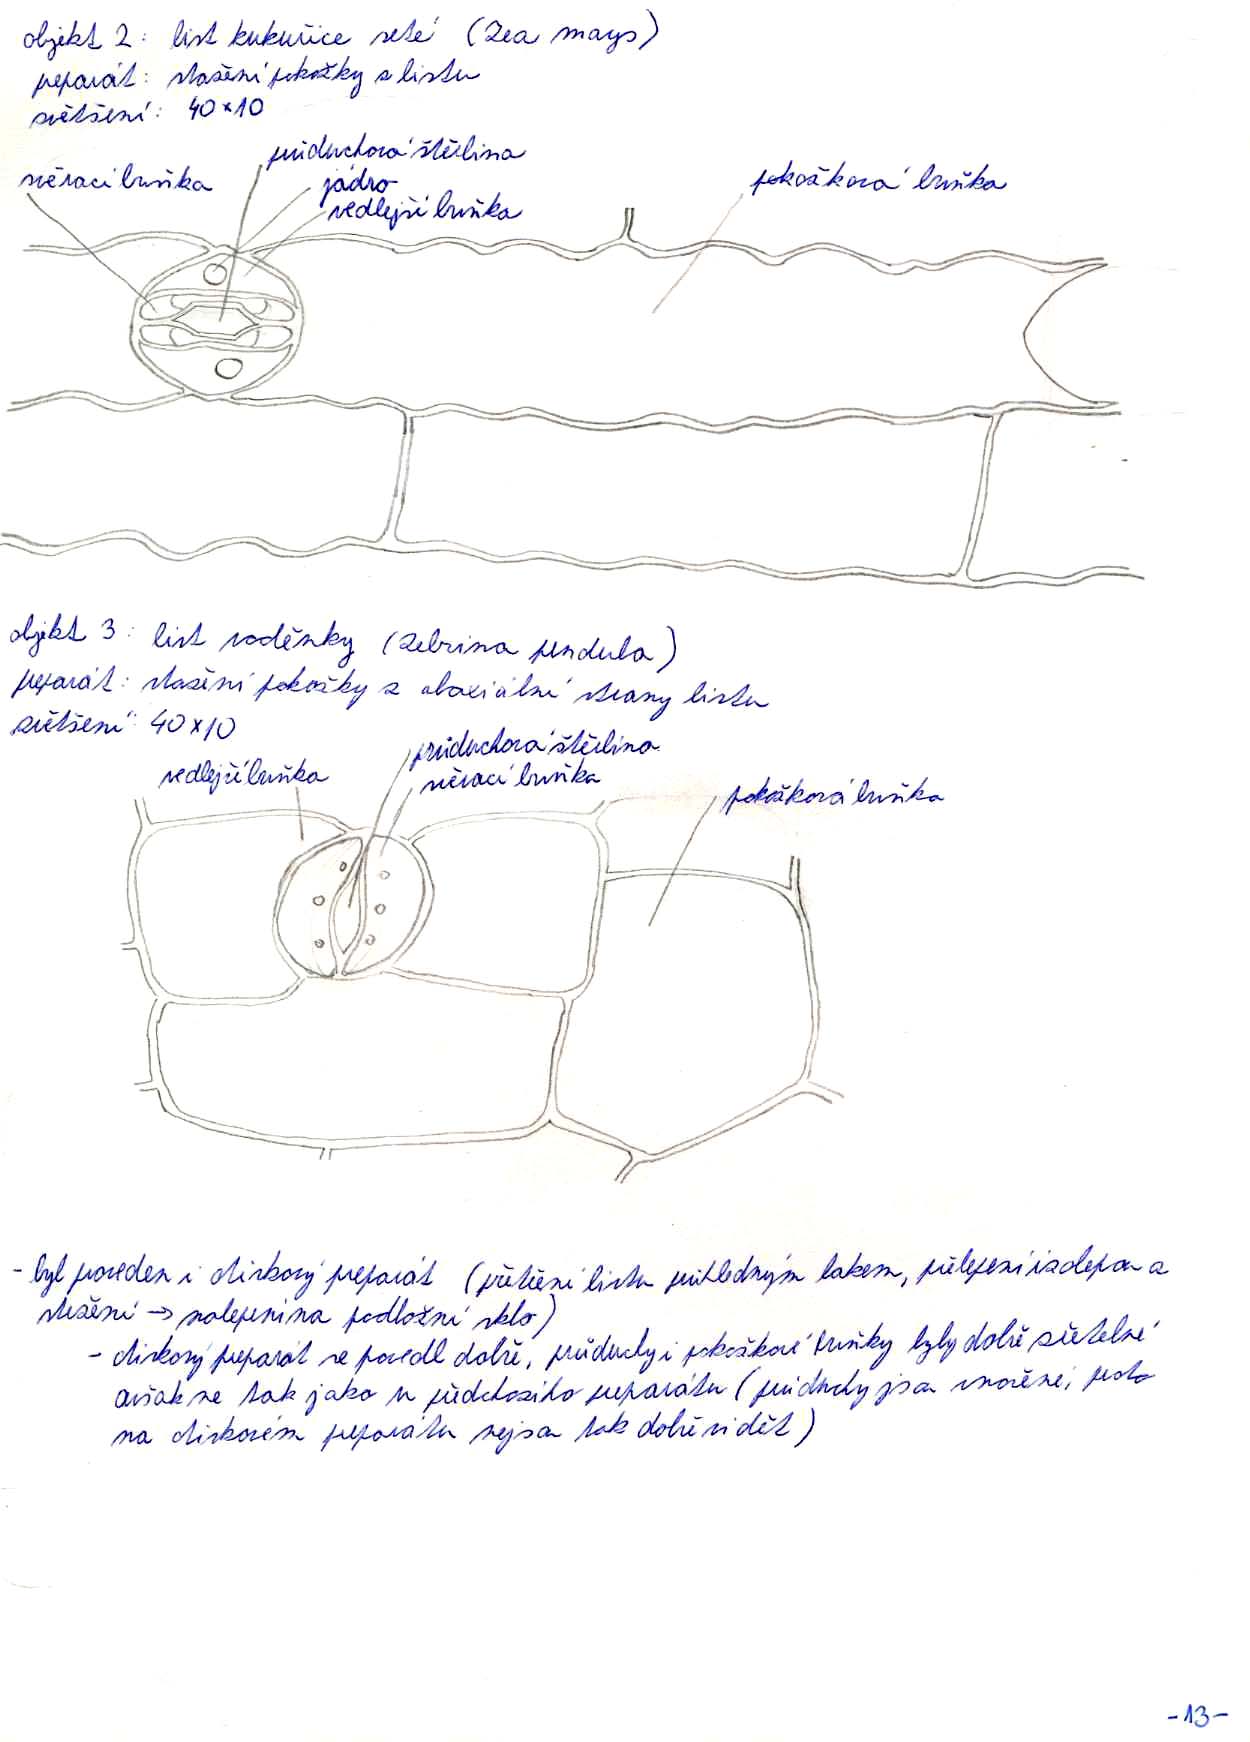 objekt 2: list kukuřice seté (Zea mays)
preparát: sloupnutí pokožky z listu
zvětšení: 40×10
průduchová štěrbina
svěrací buňka
jádro
vedlejší buňka
pokožková buňka
objekt 3: list voděnky (Zebrina pendula)
preparát: stažení pokožky z abaxiální strany listu
zvětšení: 40×10
průduchová štěrbina
vedlejší buňka
svěrací buňka
pokožková buňka
- byl proveden i otiskový preparát (přetření listu průhledným lakem, přelepení izolepou a
stažení → nalepení na podložní sklo)
- otiskový preparát se povedl dobře, průduchy i pokožkové buňky byly dobře zřetelné
avšak ne tak jako u předchozího preparátu (průduchy jsou vnořené, proto
na otiskovém preparátu nejsou tak dobře vidět)
-13-